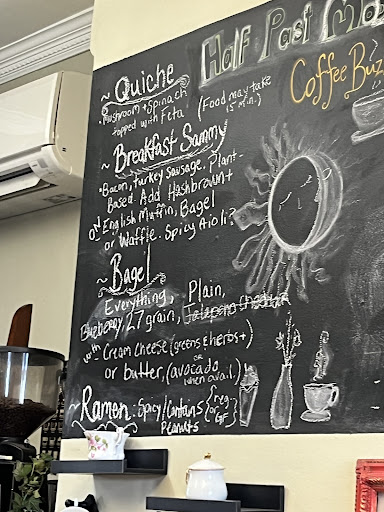 Half Past Ma
Coffee Buz
~ Quiche ~
• Mushroom + Spinach
topped with Feta
(Food may take
15 min.)
~ Breakfast Sammy
• Bacon, Turkey Sausage, Plant-
Based. Add Hashbrown +
ON English Muffin, Bagel
or Waffle. Spicy Aioli?
~ Bagel ~
Everything, Plain,
Blueberry, 27 grain, Jalapeno Cheddar
with Cream Cheese (greens & herbs +)
OR
or butter, (avocado
when avail.)
~ Ramen: Spicy/Contains Peanuts {reg. or GF}